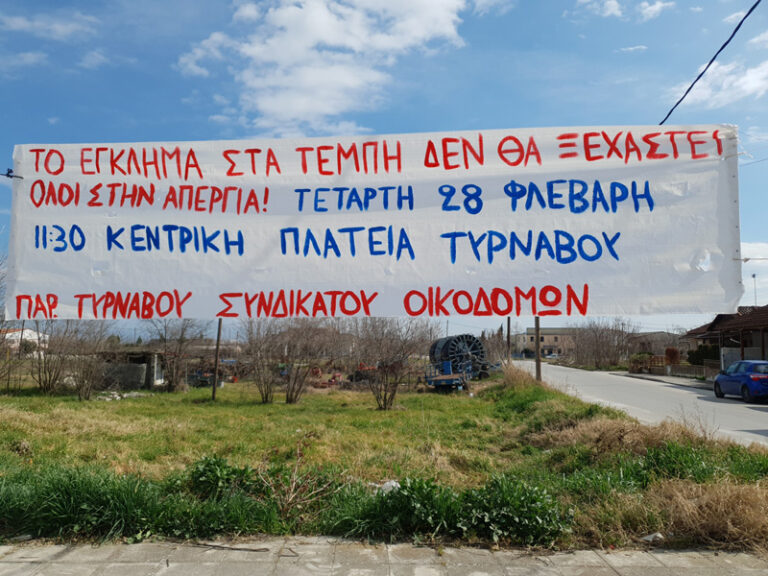 ΤΟ ΕΓΚΛΗΜΑ ΣΤΑ ΤΕΜΠΗ ΔΕΝ ΘΑ ΞΕΧΑΣΤΕΙ
ΟΛΟΙ ΣΤΗΝ ΑΠΕΡΓΙΑ! ΤΕΤΑΡΤΗ 28 ΦΛΕΒΑΡΗ
11:30 ΚΕΝΤΡΙΚΗ ΠΛΑΤΕΙΑ ΤΥΡΝΑΒΟΥ
ΠΑΡ. ΤΥΡΝΑΒΟΥ ΣΥΝΔΙΚΑΤΟΥ ΟΙΚΟΔΟΜΩΝ